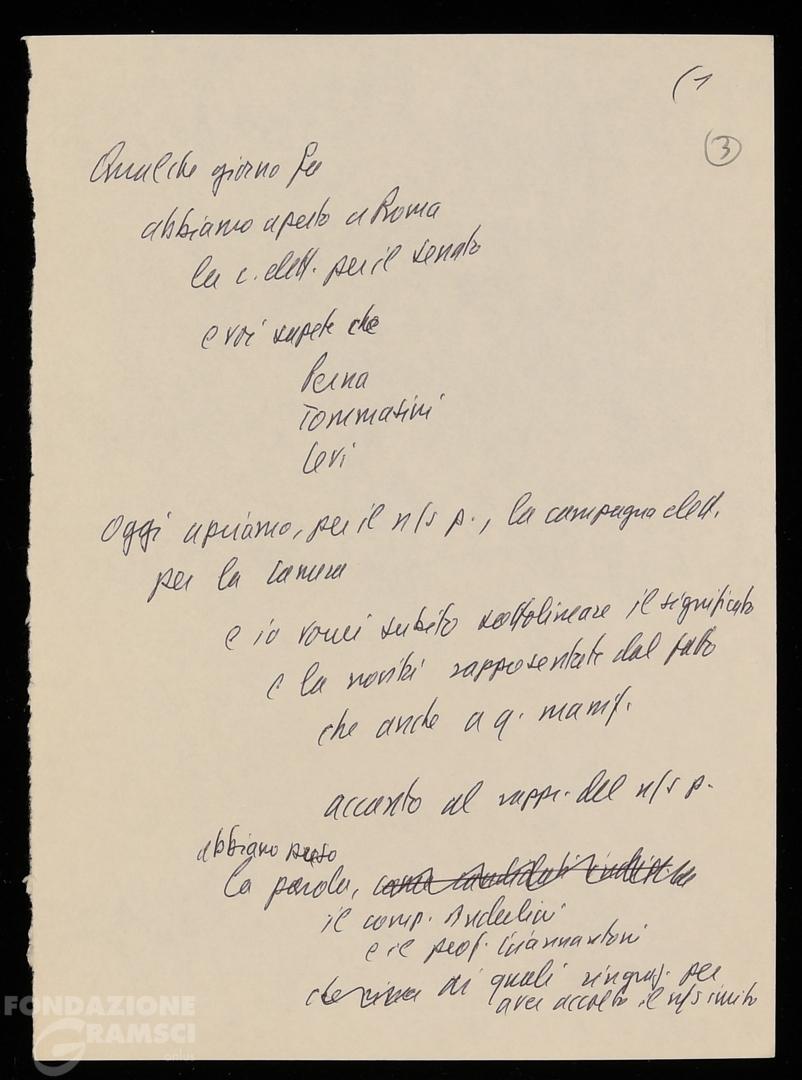 (1
3
Qualche giorno fa
abbiamo aperto a Roma
la c. elett. per il senato
e voi sapete che
Perna
Tommasini
Levi
Oggi apriamo, per il n/s p., la campagna elett.
per la Camera
e io vorrei subito sottolineare il significato
e la novità rappresentate dal fatto
che anche a q. manif.
accanto al rappr. del n/s p.
abbiamo preso
la parola, come candidati indip.
il comp. Anderlini
e il prof. Giannantoni
ai quali ringraz. per
aver accolto il n/s invito
FONDAZIONE
GRAMSCI
onlus